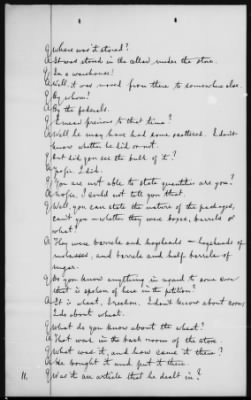 Q Where was it stored?
A It was stored in the cellar, under the store.
Q In a warehouse?
A Well, it was moved from there to somewhere else.
Q By whom?
A By the federals.
Q Ever previous to that time?
A Well he may have had some scattered. I don't
know whether he did or not.
Q But did you see the bulk of it?
A Yes I did.
Q You are not able to state quantities are you?
A No sir, I could not tell you that.
Q Well, you can state the nature of the packages,
can't you - whether they were boxes, barrels or
what?
A They were barrels and hogsheads - hogsheads of
molasses, and barrels and half barrels of
sugar.
Q Do you know anything in regard to some corn
that is spoken of here in the petition?
A It is wheat, I reckon. I don't know about corn,
I do about wheat.
Q What do you know about the wheat?
A That was in the back room of the store.
Q What was it, and how came it there?
A He bought it and put it there.
Q Was it an article that he dealt in?
11.